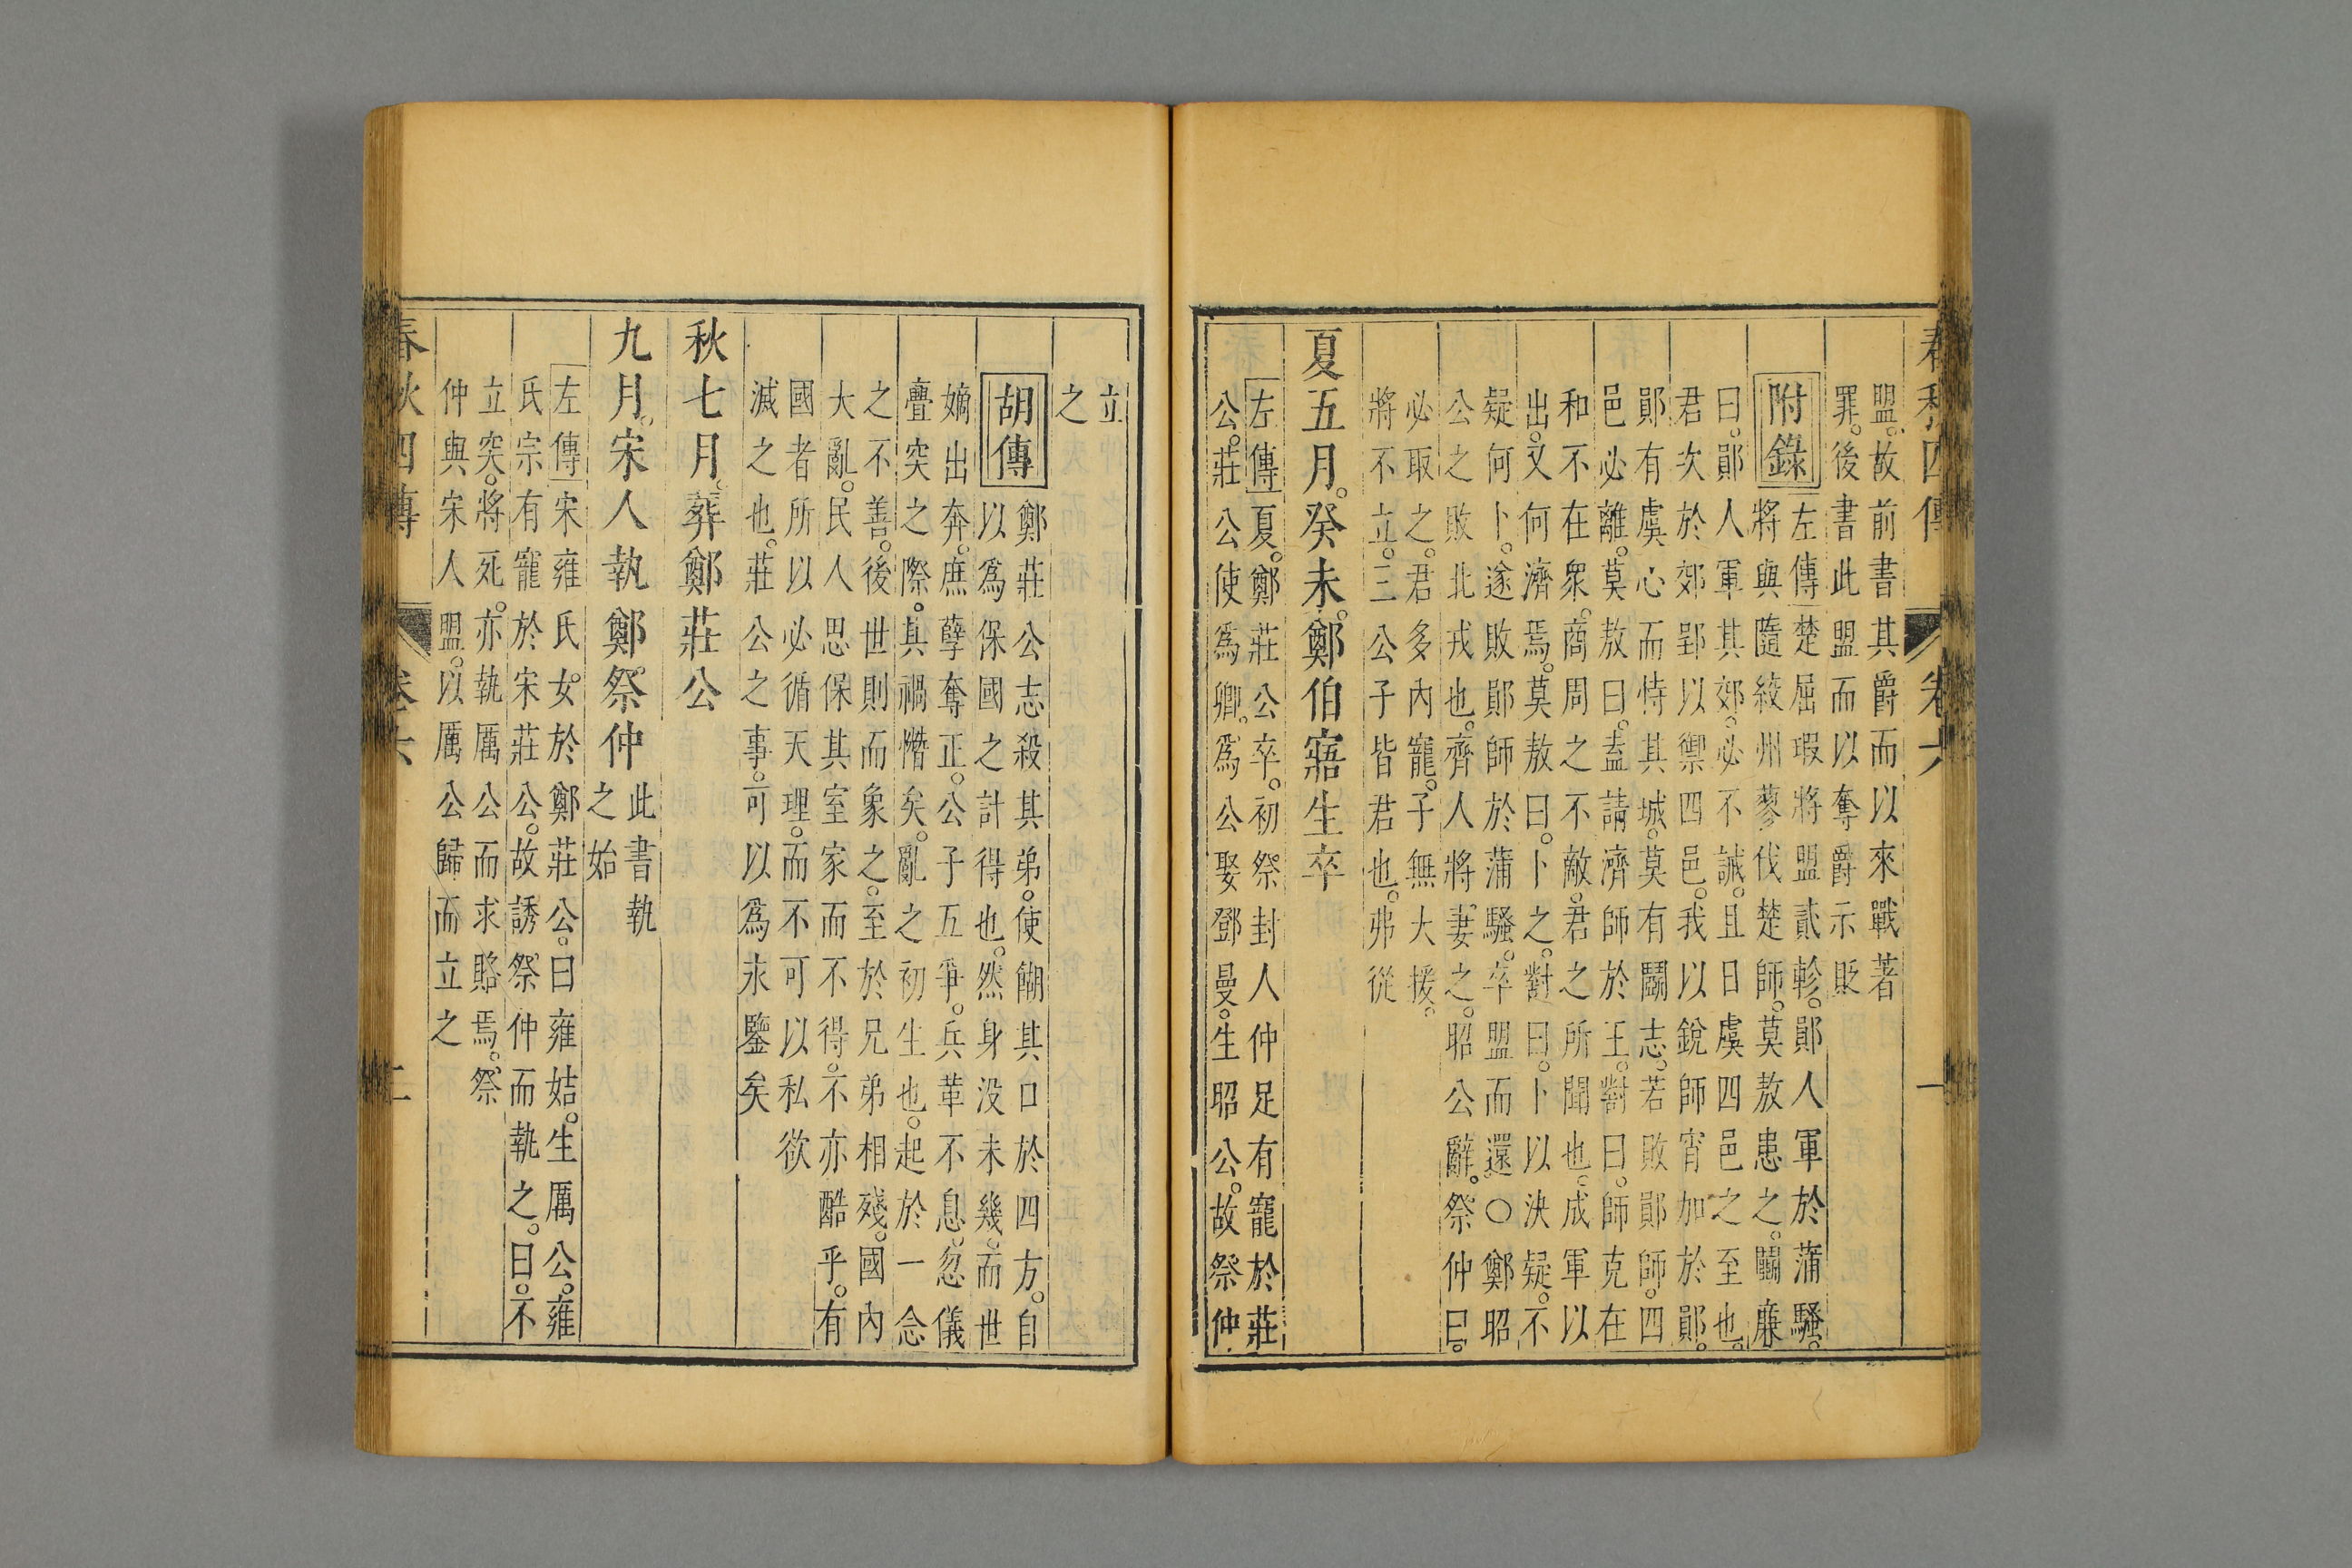 春秋四傳 卷六 一
盟。故前書其爵而以來戰著
罪。後書此盟而以奪爵示貶
附錄
左傳楚屈瑕將盟貳軫。鄖人軍於蒲騷。
將與隨絞州蓼伐楚師。莫敖患之。鬭廉
曰。鄖人軍其郊。必不誡。且日虞四邑之至也。
君次於郊郢以禦四邑。我以銳師宵加於鄖。
鄖有虞心而恃其城。莫有鬭志。若敗鄖師。四
邑必離。莫敖曰。盍請濟師於王。對曰。師克在
和不在衆。商周之不敵。君之所聞也。成軍以
出。又何濟焉。莫敖曰。卜之。對曰。卜以決疑。不
疑何卜。遂敗鄖師於蒲騷。卒盟而還○鄭昭
公之敗北戎也。齊人將妻之。昭公辭。祭仲曰。
必取之。君多內寵。子無大援。
將不立。三公子皆君也。弗從
夏五月。癸未。鄭伯寤生卒
左傳夏。鄭莊公卒。初祭封人仲足有寵於莊
公。莊公使爲卿。爲公娶鄧曼。生昭公。故祭仲
立
之
胡傳
鄭莊公志殺其弟。使餬其口於四方。自
以爲保國之計得也。然身没未幾。而世
嫡出奔。庶孽奪正。公子五爭。兵革不息。忽儀
亹突之際。其禍憯矣。亂之初生也。起於一念
之不善。後世則而象之。至於兄弟相殘。國內
大亂。民人思保其室家而不得。不亦酷乎。有
國者所以必循天理。而不可以私欲
滅之也。莊公之事。可以爲永鑒矣
秋七月。葬鄭莊公
九月。宋人執鄭祭仲
此書執
之始
左傳宋雍氏女於鄭莊公。曰雍姞。生厲公。雍
氏宗有寵於宋莊公。故誘祭仲而執之。曰。不
立突。將死。亦執厲公而求賂焉。祭
仲與宋人盟。以厲公歸而立之
春秋四傳 卷六 二